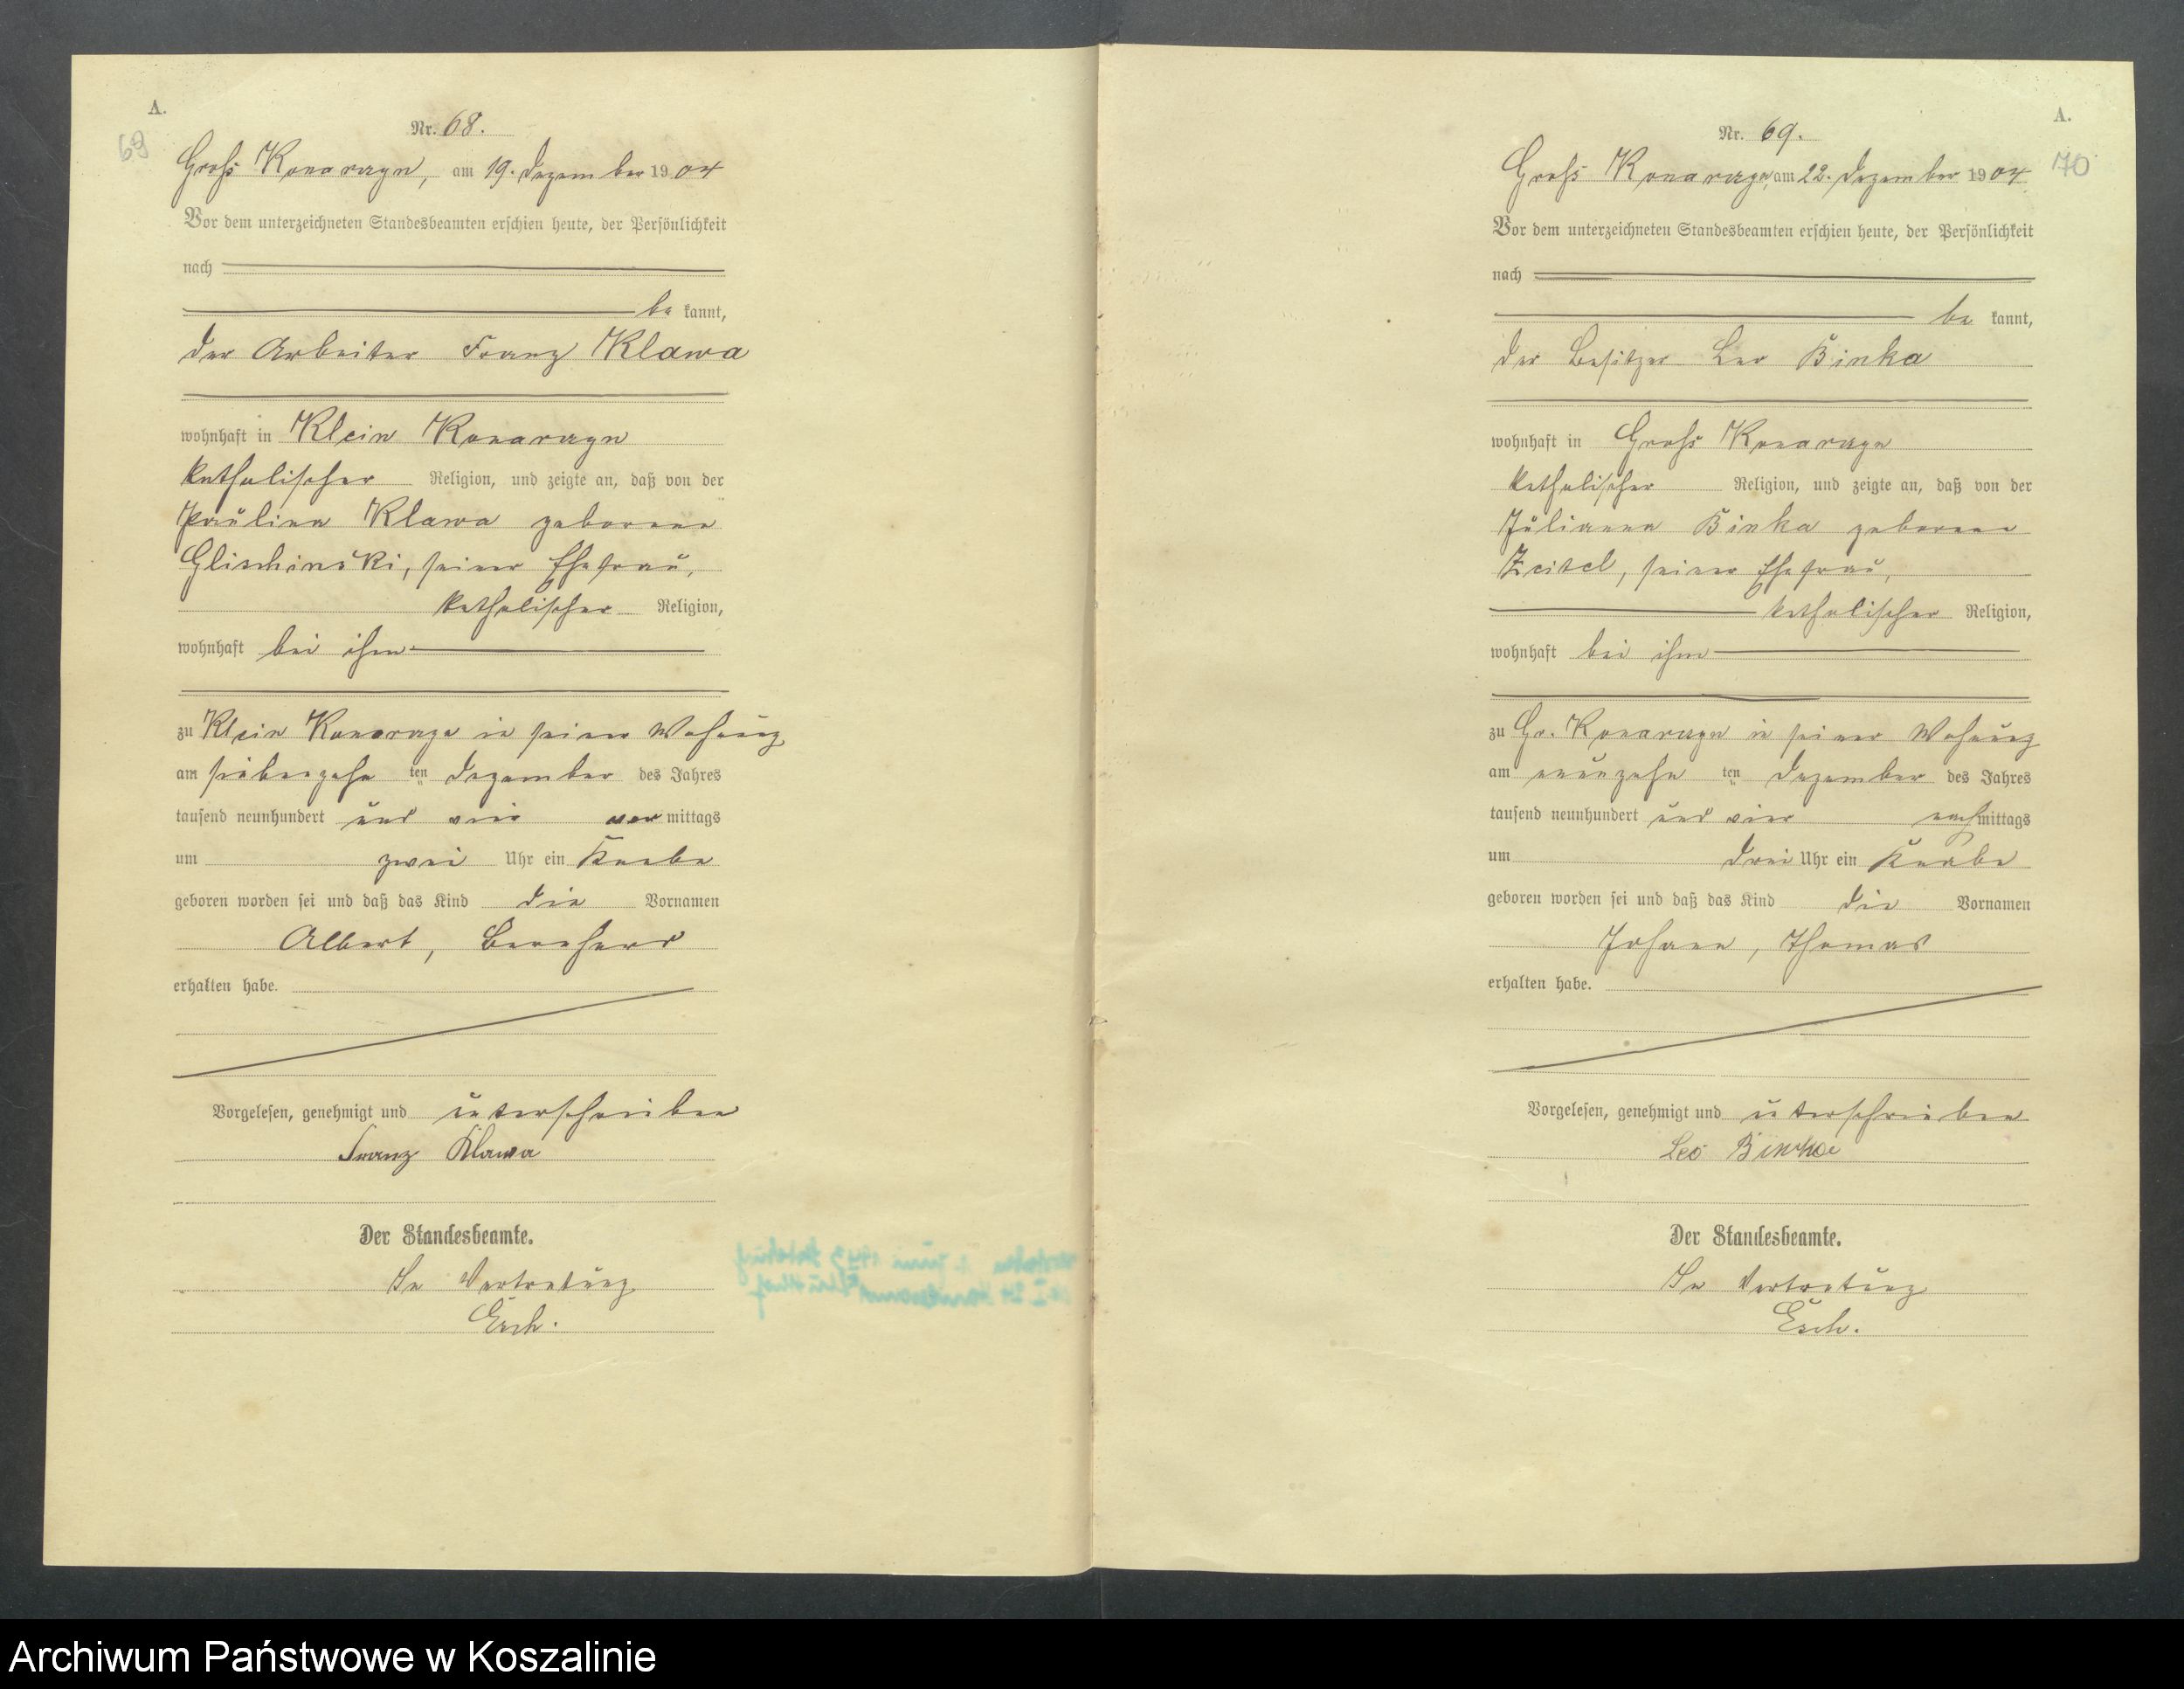 A.
69
Nr. 68.
Groß Konarczyn, am 19. Dezember 1904
Vor dem unterzeichneten Standesbeamten erschien heute, der Persönlichkeit
nach
be kannt,
der Arbeiter Franz Klawa
wohnhaft in Klein Konarczyn
katholischer Religion, und zeigte an, daß von der
Paulina Klawa geborene
Glischinski, seiner Ehefrau,
katholischer Religion,
wohnhaft bei ihm
zu Klein Konarczyn in seiner Wohnung
am siebenzehn ten Dezember des Jahres
tausend neunhundert und vier vor mittags
um zwei Uhr ein Knabe
geboren worden sei und daß das Kind die Vornamen
Albert, Bernhard
erhalten habe.
Vorgelesen, genehmigt und unterschrieben
Franz Klawa
Der Standesbeamte.
In Vertretung
Esch.
A.
70
Nr. 69.
Groß Konarczyn, am 22. Dezember 1904
Vor dem unterzeichneten Standesbeamten erschien heute, der Persönlichkeit
nach
be kannt,
der Besitzer Leo Binka
wohnhaft in Groß Konarczyn
katholischer Religion, und zeigte an, daß von der
Julianna Binka geborene
Zeitel, seiner Ehefrau,
katholischer Religion,
wohnhaft bei ihm
zu Gr. Konarczyn in seiner Wohnung
am neunzehn ten Dezember des Jahres
tausend neunhundert und vier nachmittags
um drei Uhr ein Knabe
geboren worden sei und daß das Kind die Vornamen
Johann, Thomas
erhalten habe.
Vorgelesen, genehmigt und unterschrieben
Leo Binka
Der Standesbeamte.
In Vertretung
Esch.
Archiwum Państwowe w Koszalinie